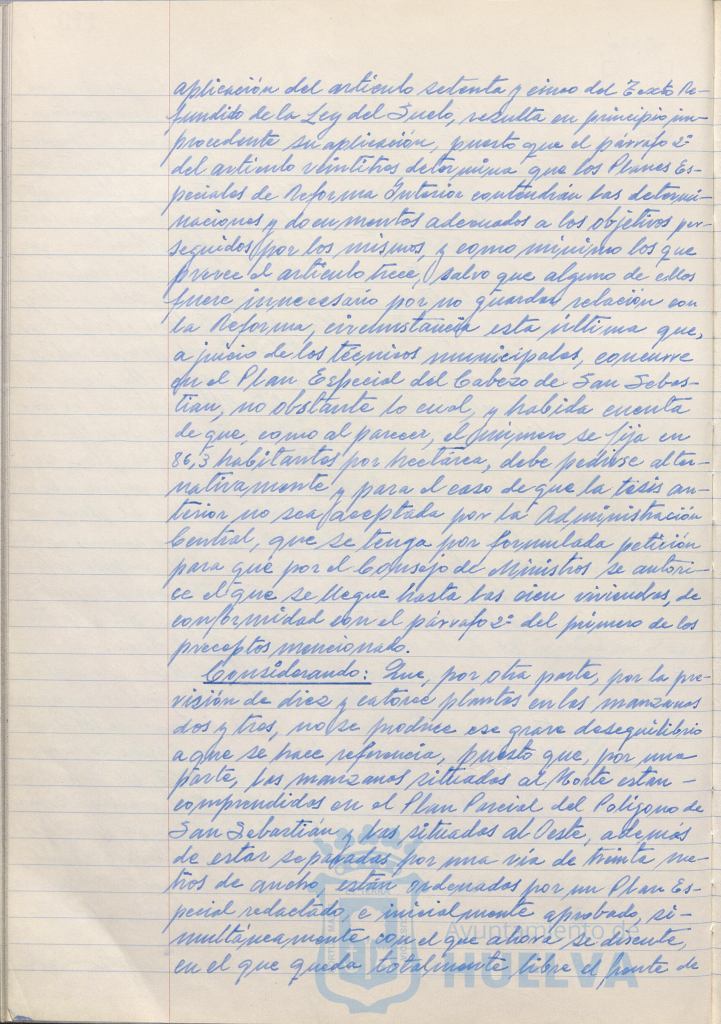 aplicación del artículo setenta y cinco del Texto Re-
fundido de la Ley del Suelo, resulta en principio im-
procedente su aplicación, puesto que el párrafo 2º
del artículo veintitres determina que los Planes Es-
peciales de Reforma Interior contendrán las determi-
naciones y documentos adecuados a los objetivos per-
seguidos por los mismos, y como mínimo los que
prevee el artículo trece, salvo que alguno de ellos
fuere innecesario por no guardar relación con
la Reforma, circunstancia esta última que,
a juicio de los técnicos municipales, concurre
en el Plan Especial del Cabezo de San Sebas-
tian, no obstante lo cual, y habida cuenta
de que, como al parecer, el número se fija en
86,3 habitantes por hectárea, debe pedirse alter-
nativamente y para el caso de que la tesis an-
terior no sea aceptada por la Administración
Central, que se tenga por formulada petición
para que por el Consejo de Ministros se autori-
ce el que se llegue hasta las cien viviendas, de
conformidad con el párrafo 2º del primero de los
preceptos mencionado.
Considerando: Que, por otra parte, por la pre-
visión de diez y catorce plantas en las manzanas
dos y tres, no se produce ese grave desequilibrio
a que se hace referencia, puesto que, por una
parte, las manzanas situadas al Norte estan-
comprendidas en el Plan Parcial del Polígono de
San Sebastián y las situadas al Oeste, además
de estar separadas por una vía de treinta me-
tros de ancho, están ordenadas por un Plan Es-
pecial redactado, e inicialmente aprobado, si-
multáneamente con el que ahora se discute,
en el que queda totalmente libre el frente de
Ayuntamiento de
HUELVA